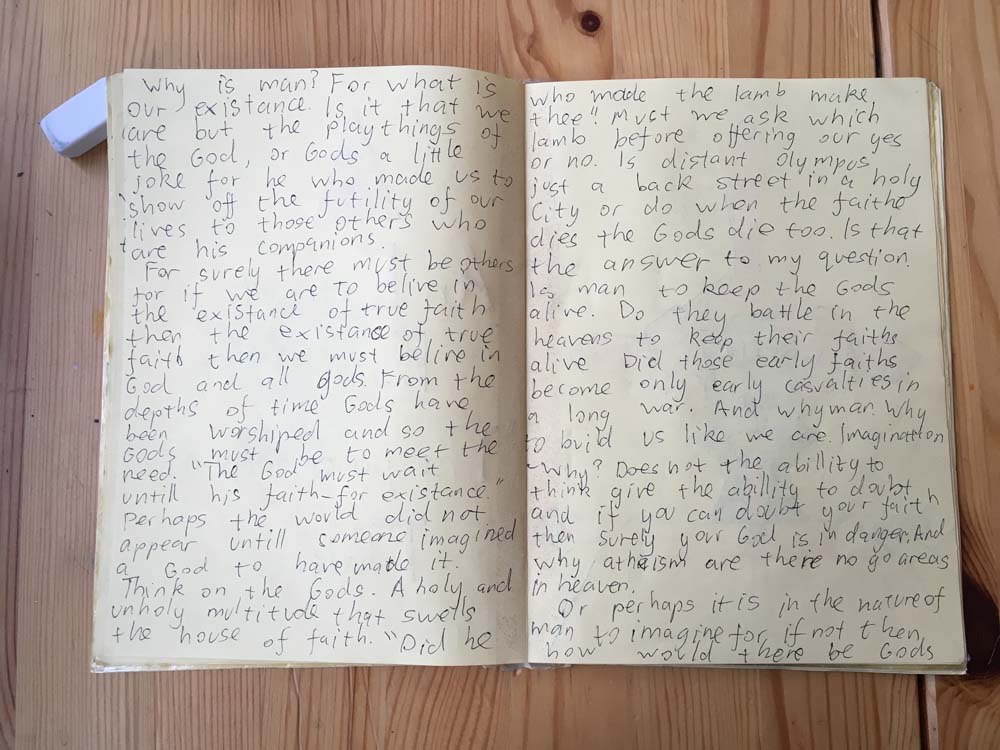 Why is man? For what is
our existance. Is it that we
are but the playthings of
the God, or Gods a little
joke for he who made us to
show off the futility of our
lives to those others who
are his companions.
For surely there must be others
for if we are to belive in
the existance of true faith
then the existance of true
faith then we must belive in
God and all gods. From the
depths of time Gods have
been worshiped and so the
Gods must be to meet the
need. "The God must wait
untill his faith-for existance."
Perhaps the world did not
appear untill someone imagined
a God to have made it.
Think on the Gods. A holy and
unholy multitude that swells
the house of faith. "Did he
who made the lamb make
thee". Must we ask which
lamb before offering our yes
or no. Is distant Olympus
just a back street in a holy
City or do when the faiths
dies the Gods die too. Is that
the answer to my question.
Is man to keep the Gods
alive. Do they battle in the
heavens to keep their faiths
alive Did those early faiths
become only early casualties in
a long war. And why man. Why
to build us like we are. Imagination
-Why? Does not the abillity to
think give the abillity to doubt
and if you can doubt your faith
then surely your God is in danger. And
why atheism are there no go areas
in heaven.
Or perhaps it is in the nature of
man to imagine for if not then
how would there be Gods